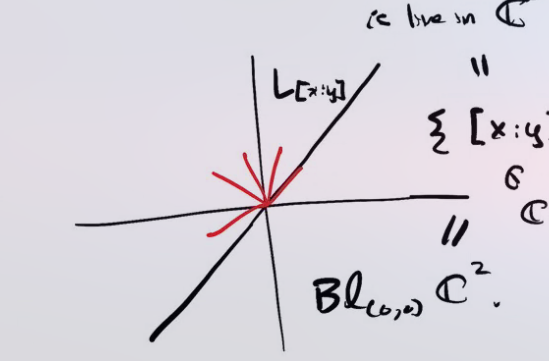 is line in ℂ
L[x:y]
"
{ [x:y]
∈
ℂ
"
Bl(0,0) ℂ².